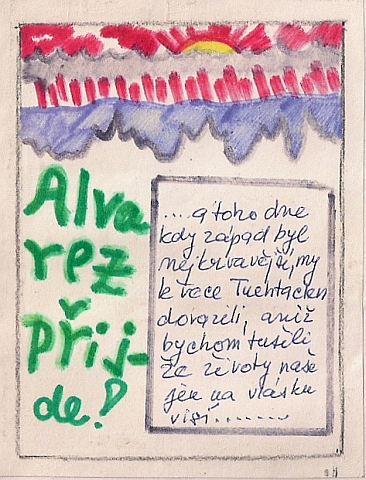 Alva
rez
přij-
de!
....a toho dne
kdy západ byl
nejkrvavější, my
k řece Tuentacien
dorazili, aniž
bychom tušili
že životy naše
jen na vlásku
visí........